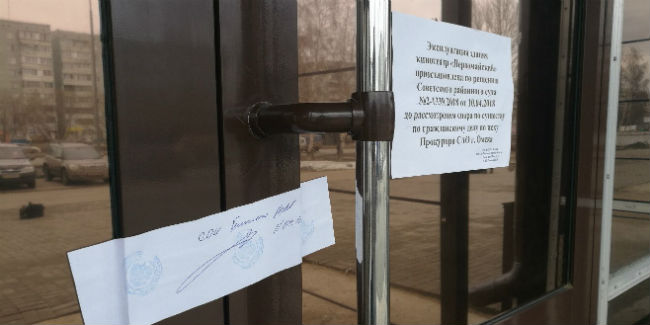 Эксплуатация здания
кинотеатр «Первомайский»
приостановлена по решению
Советского районного суда
№2-1339/2018 от 10.04.2018
до рассмотрения спора по существу
по гражданскому делу по иску
Прокурора САО г. Омска
СОИ